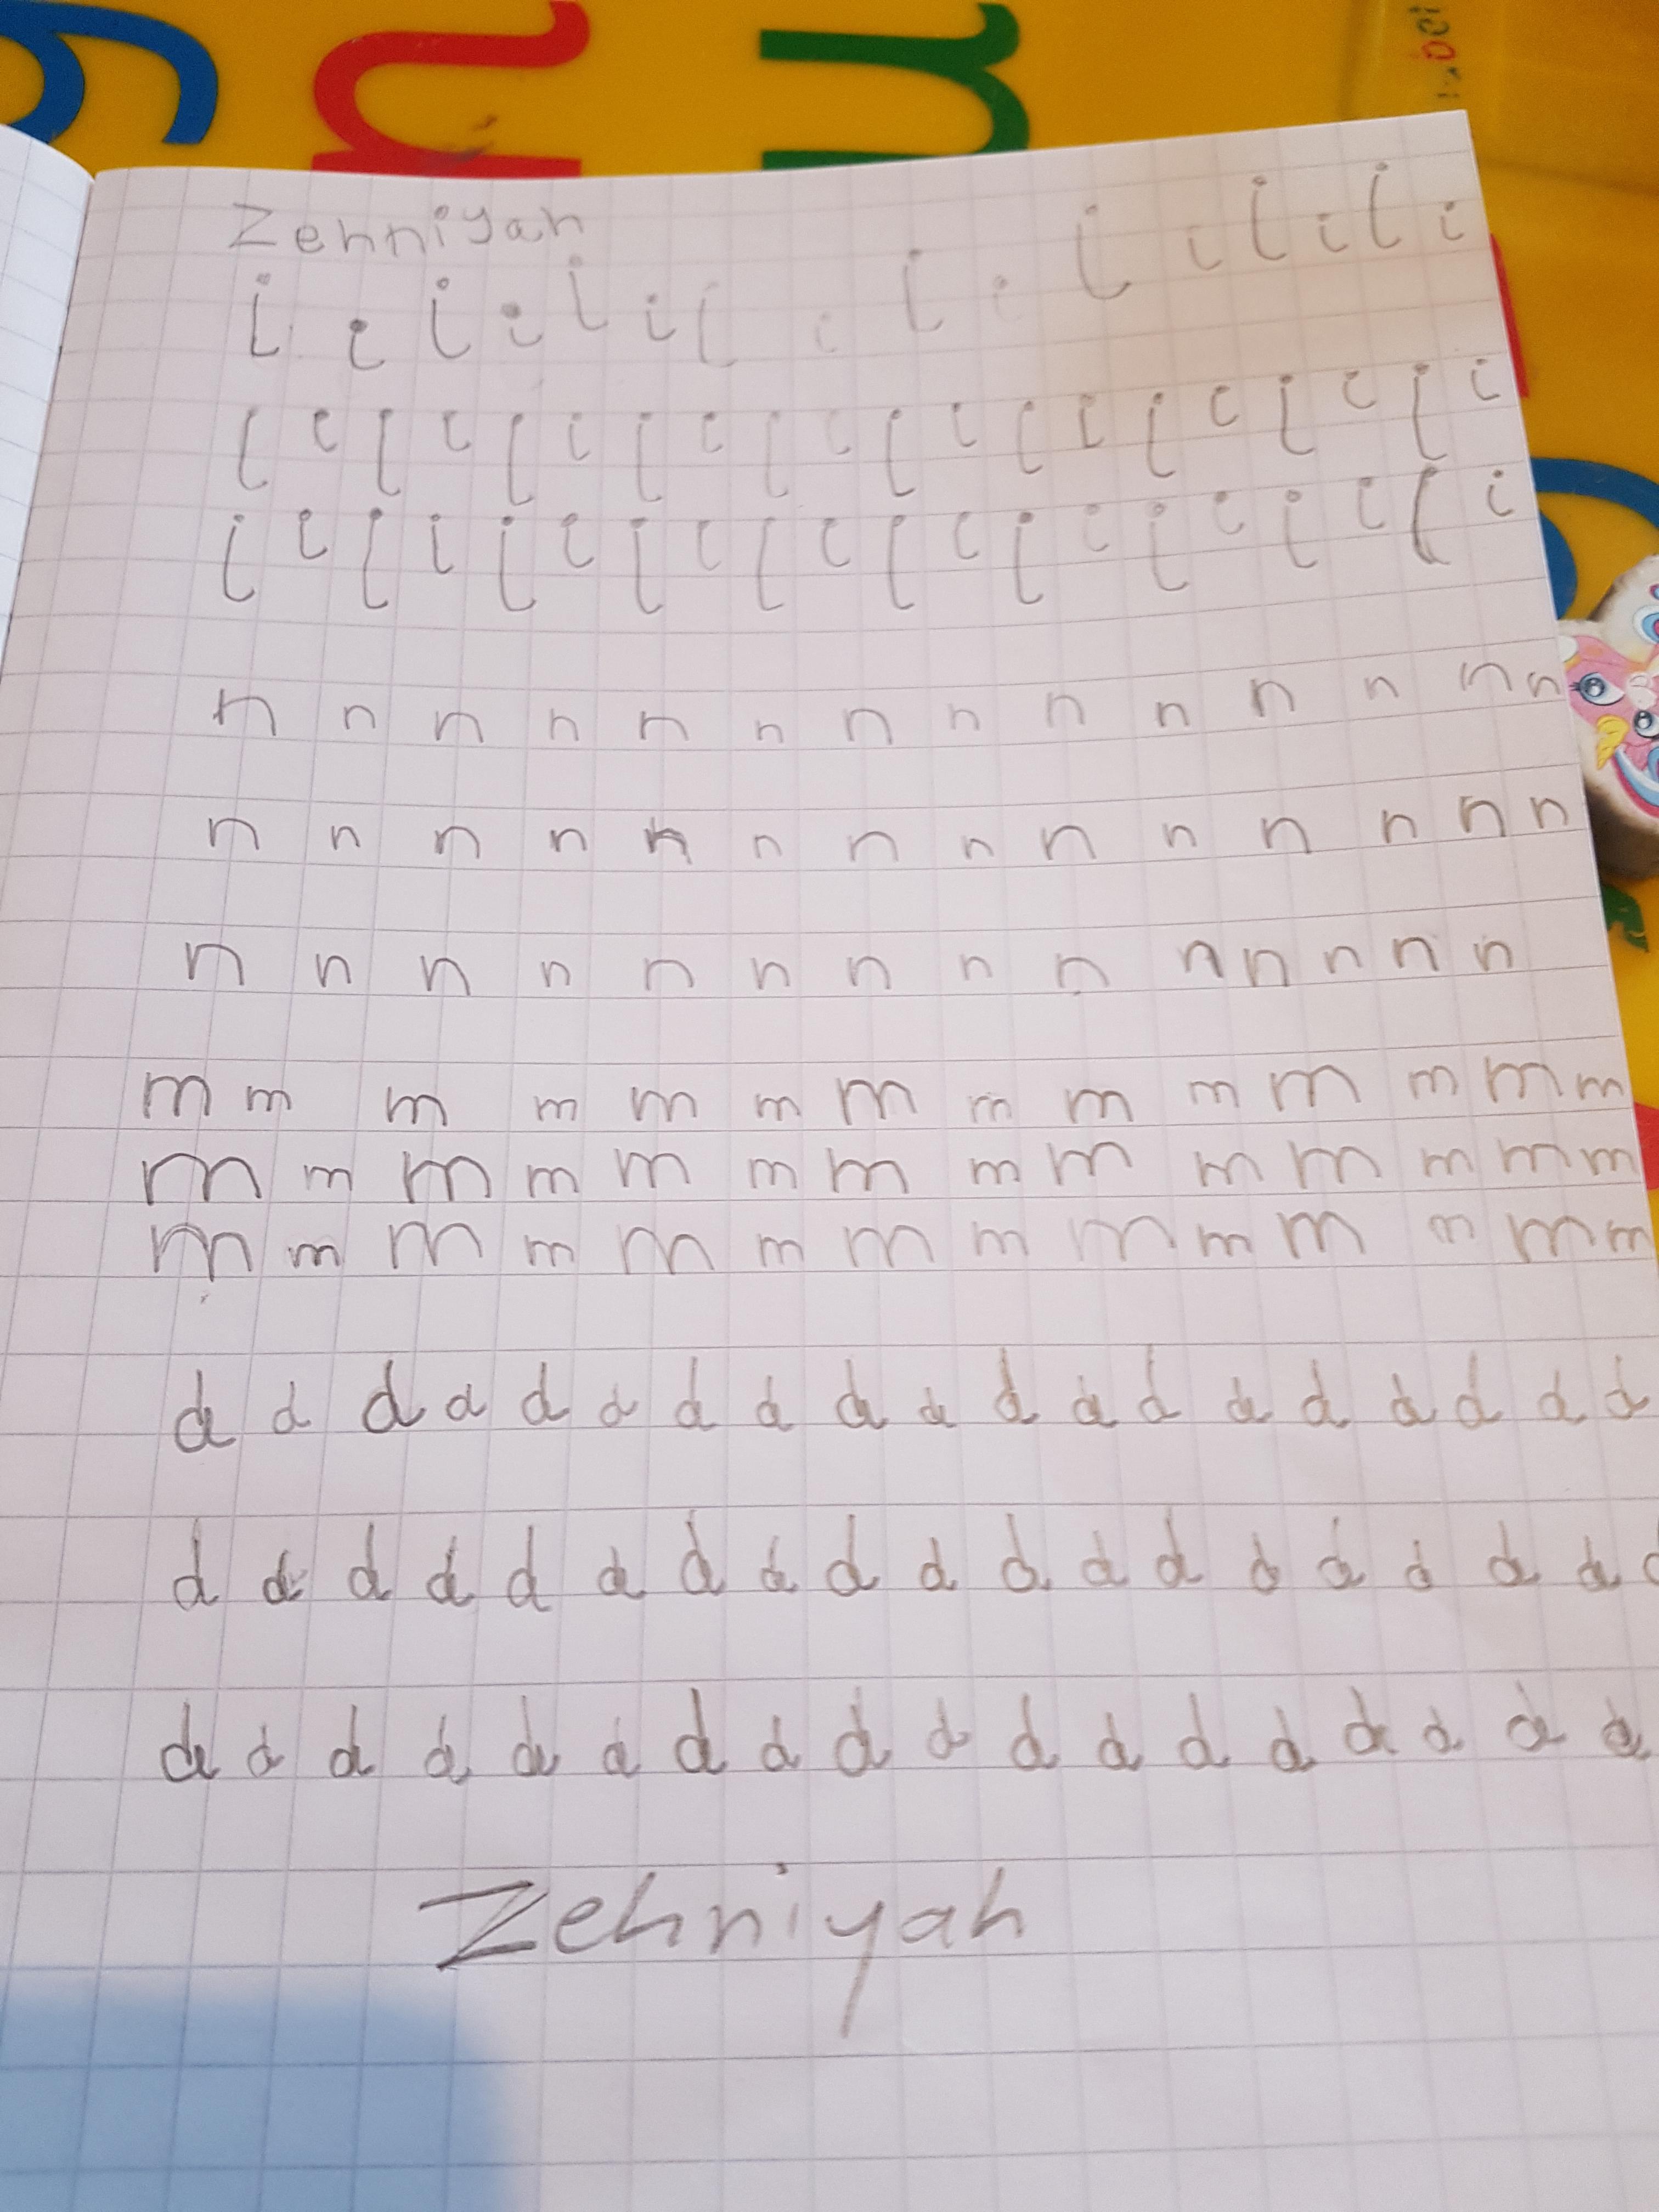 Zehniyah
i i i i i i i i i i i i i i i i
i i i i i i i i i i i i i i i i i i i i
i i i i i i i i i i i i i i i i i i i i
n n n n n n n n n n n n n n
n n n n n n n n n n n n n n
n n n n n n n n n n n n n n
m m m m m m m m m m m m m m
m m m m m m m m m m m m m m
m m m m m m m m m m m m m m
d d d d d d d d d d d d d d d d d d d
d d d d d d d d d d d d d d d d d d
d d d d d d d d d d d d d d d d d d
Zehniyah